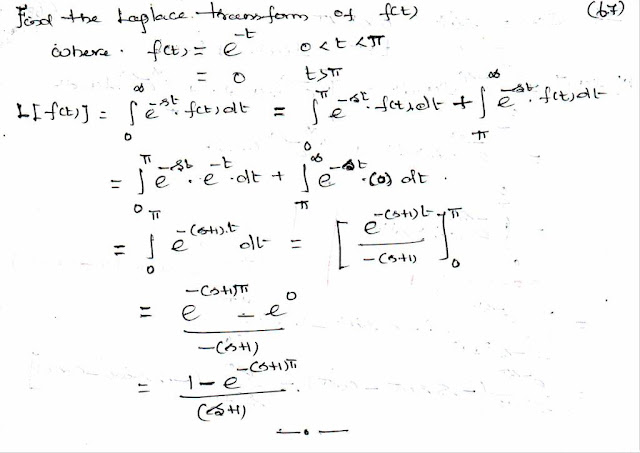 Find the Laplace transform of f(t) (67)
where. f(t) = e^{-t} 0 < t < π
= 0 t > π
L[f(t)] = ∫_0^∞ e^{-st}. f(t) dt = ∫_0^π e^{-st}. f(t) dt + ∫_π^∞ e^{-st}. f(t) dt
= ∫_0^π e^{-st}. e^{-t}. dt + ∫_π^∞ e^{-st}. (0) dt.
= ∫_0^π e^{-(s+1).t} dt = [ e^{-(s+1)t} / -(s+1) ]_0^π
= (e^{-(s+1)π} - e^0) / -(s+1)
= (1 - e^{-(s+1)π}) / (s+1).